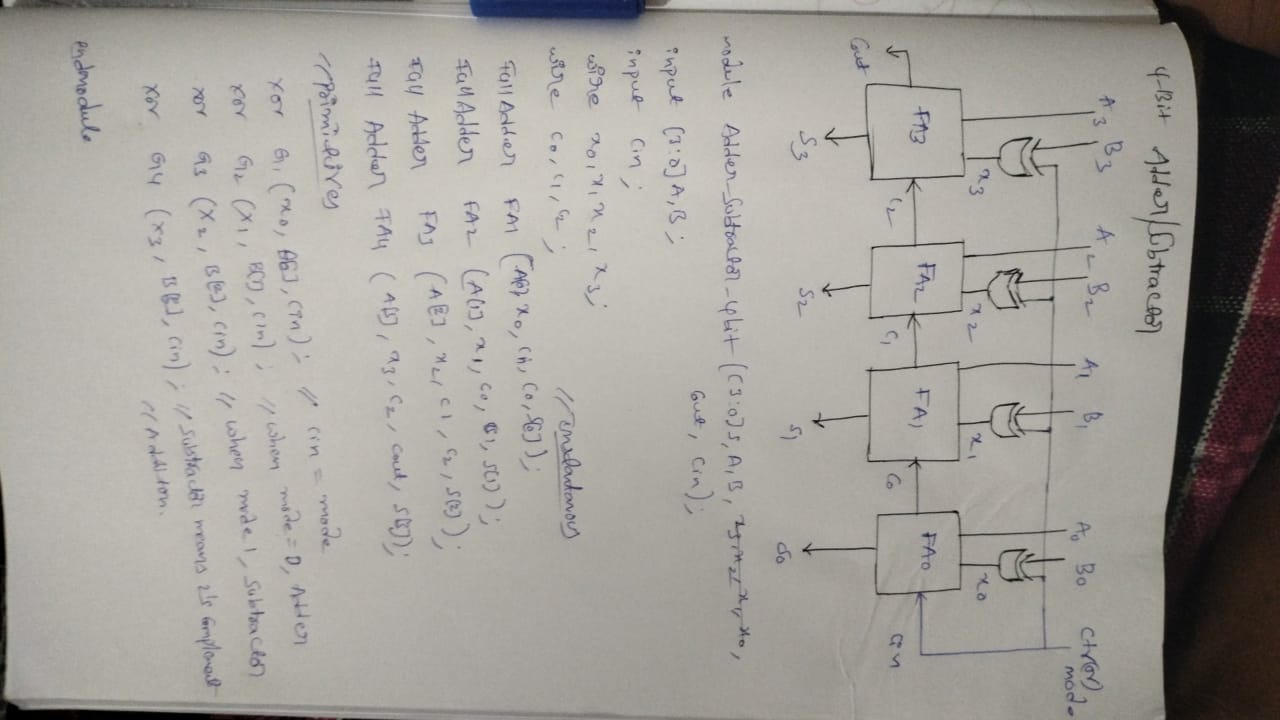 4-Bit Adder/Subtractor
A3 B3 A2 B2 A1 B1 A0 B0 Ctr(or) mode
x3 x2 x1 x0
FA3 C2 FA2 C1 FA1 C0 FA0 Cin
Cout
S3 S2 S1 S0
module Adder_Subtractor_4bit ([3:0]S, A, B, x3 x2 x1, x0,
Cout, Cin);
input [3:0] A, B;
input Cin;
wire x0, x1, x2, x3;
wire c0, c1, c2;
Full Adder FA1 (A[0], x0, cin, c0, S[0]);
Full Adder FA2 (A[1], x1, c0, c1, S[1]);
Full Adder FA3 (A[2], x2, c1, c2, S[2]);
Full Adder FA4 (A[3], x3, c2, cout, S[3]);
//Primitives
xor G1 (x0, B[0], cin); // cin = mode
xor G2 (x1, B[1], cin); // when mode=0, Adder
xor G3 (x2, B[2], cin); // when mode 1, Subtractor
xor G4 (x3, B[3], cin); // Subtractor means 2's complement
// Addition.
endmodule